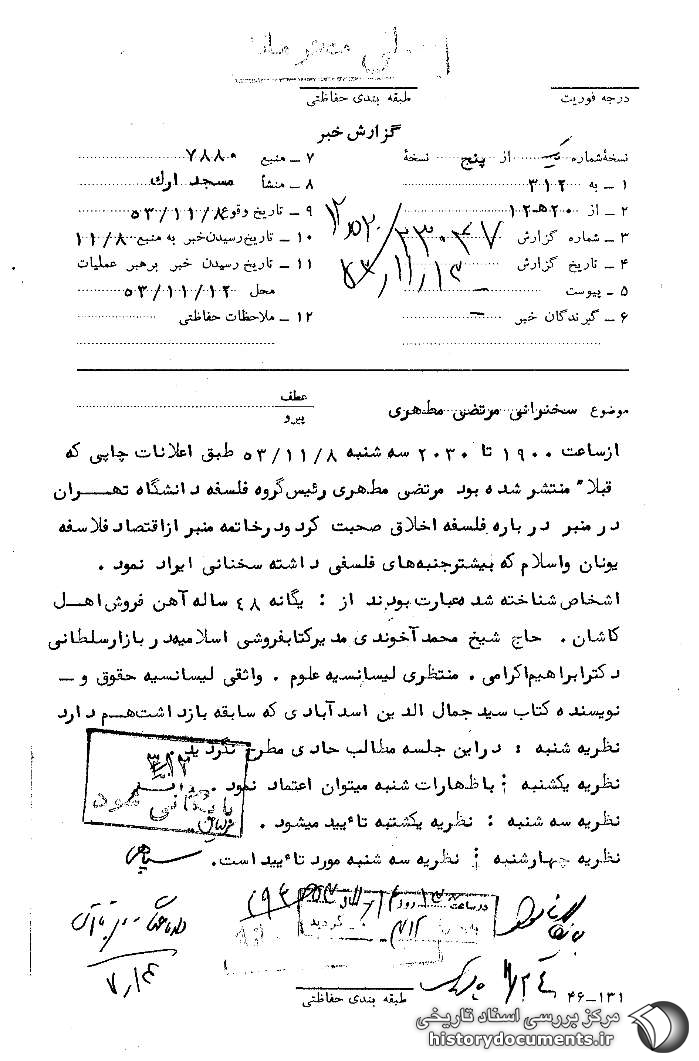 درجه فوریت
طبقه بندی حفاظتی
گزارش خبر
نسخهٔ شماره یک از پنج نسخهٔ
۱ ـ به ۳۱۲
۲ ـ از ۲۰ه‍ـ۱۲
۳ ـ شماره گزارش ۲۳۰۴۷
۴ ـ تاریخ گزارش ۵۳/۱۱/۱۳
۵ ـ پیوست ـ
۶ ـ گیرندگان خبر ـ
۷ ـ منبع ۷۸۸۰
۸ ـ منشأ مسجد ارك
۹ ـ تاریخ وقوع ۵۳/۱۱/۸
۱۰ ـ تاریخ رسیدن خبر به منبع ۱۱/۸
۱۱ ـ تاریخ رسیدن خبر برهبر عملیات
محل ۵۳/۱۱/۱۲
۱۲ ـ ملاحظات حفاظتی
موضوع سخنرانی مرتضی مطهری
عطف
پیرو
از ساعت ۱۹۰۰ تا ۲۰۳۰ سه شنبه ۵۳/۱۱/۸ طبق اعلانات چاپی که
قبلاً منتشر شده بود مرتضی مطهری رئیس گروه فلسفه دانشگاه تهران
در منبر درباره فلسفه اخلاق صحبت کرد و در خاتمه منبر از اقتصاد فلاسفه
یونان و اسلام که بیشتر جنبه‌های فلسفی داشته سخنانی ایراد نمود .
اشخاص شناخته شده عبارت بودند از : یگانه ۴۸ ساله آهن فروش اهل
کاشان . حاج شیخ محمد آخوندی مدیر کتابفروشی اسلامیه در بازار سلطانی
دکتر ابراهیم اکرامی . منتظری لیسانسیه علوم . واثقی لیسانسیه حقوق و ـ
نویسنده کتاب سید جمال الدین اسدآبادی که سابقه بازداشت هم دارد
نظریه شنبه : در این جلسه مطالب حادی مطرح نگردید
نظریه یکشنبه : باظهارات شنبه میتوان اعتماد نمود .
نظریه سه شنبه : نظریه یکشنبه تائید میشود .
نظریه چهارشنبه : نظریه سه شنبه مورد تائید است.
۳۱۲
بایگانی شود
در ساعت ۱۳ روز
گردید
۷/۱۴
طبقه بندی حفاظتی
۴۶ـ۱۳۱
مرکز بررسی اسناد تاریخی
historydocuments.ir